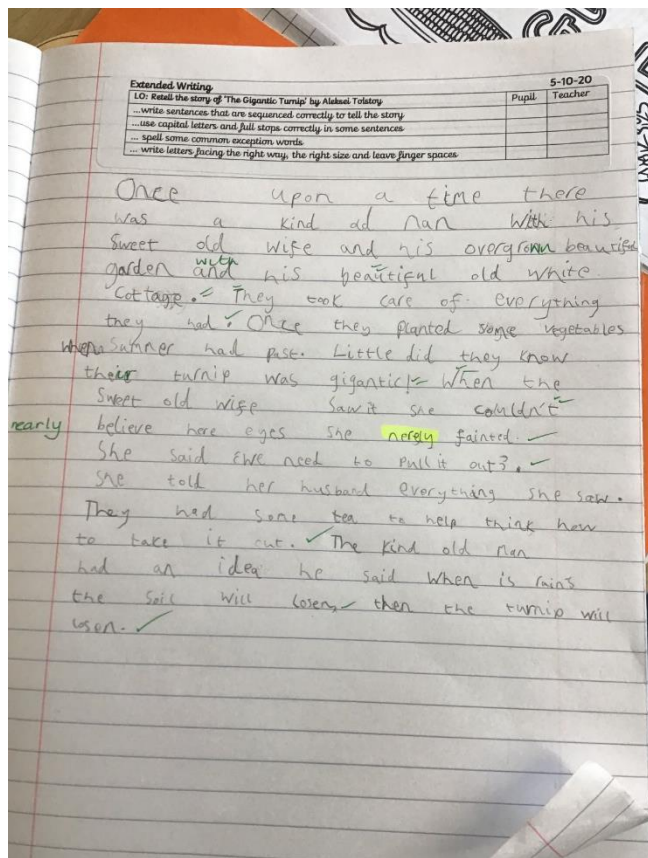 Extended Writing 5-10-20
LO: Retell the story of 'The Gigantic Turnip' by Aleksei Tolstoy Pupil Teacher
...write sentences that are sequenced correctly to tell the story
...use capital letters and full stops correctly in some sentences
... spell some common exception words
... write letters facing the right way, the right size and leave finger spaces
Once upon a time there
was a kind old man with his
sweet old wife and his overgrown beautiful
garden and with his beautiful old white
cottage. They took care of everything
they had. Once they planted some vegetables
when summer had past. Little did they know
their turnip was gigantic! When the
sweet old wife saw it she couldn't
nearly believe here eyes she nerely fainted.
She said we need to pull it out?.
she told her husband everything she saw.
They had some tea to help think how
to take it out. The kind old man
had an idea he said when is rains
the soil will losen, then the turnip will
losen.